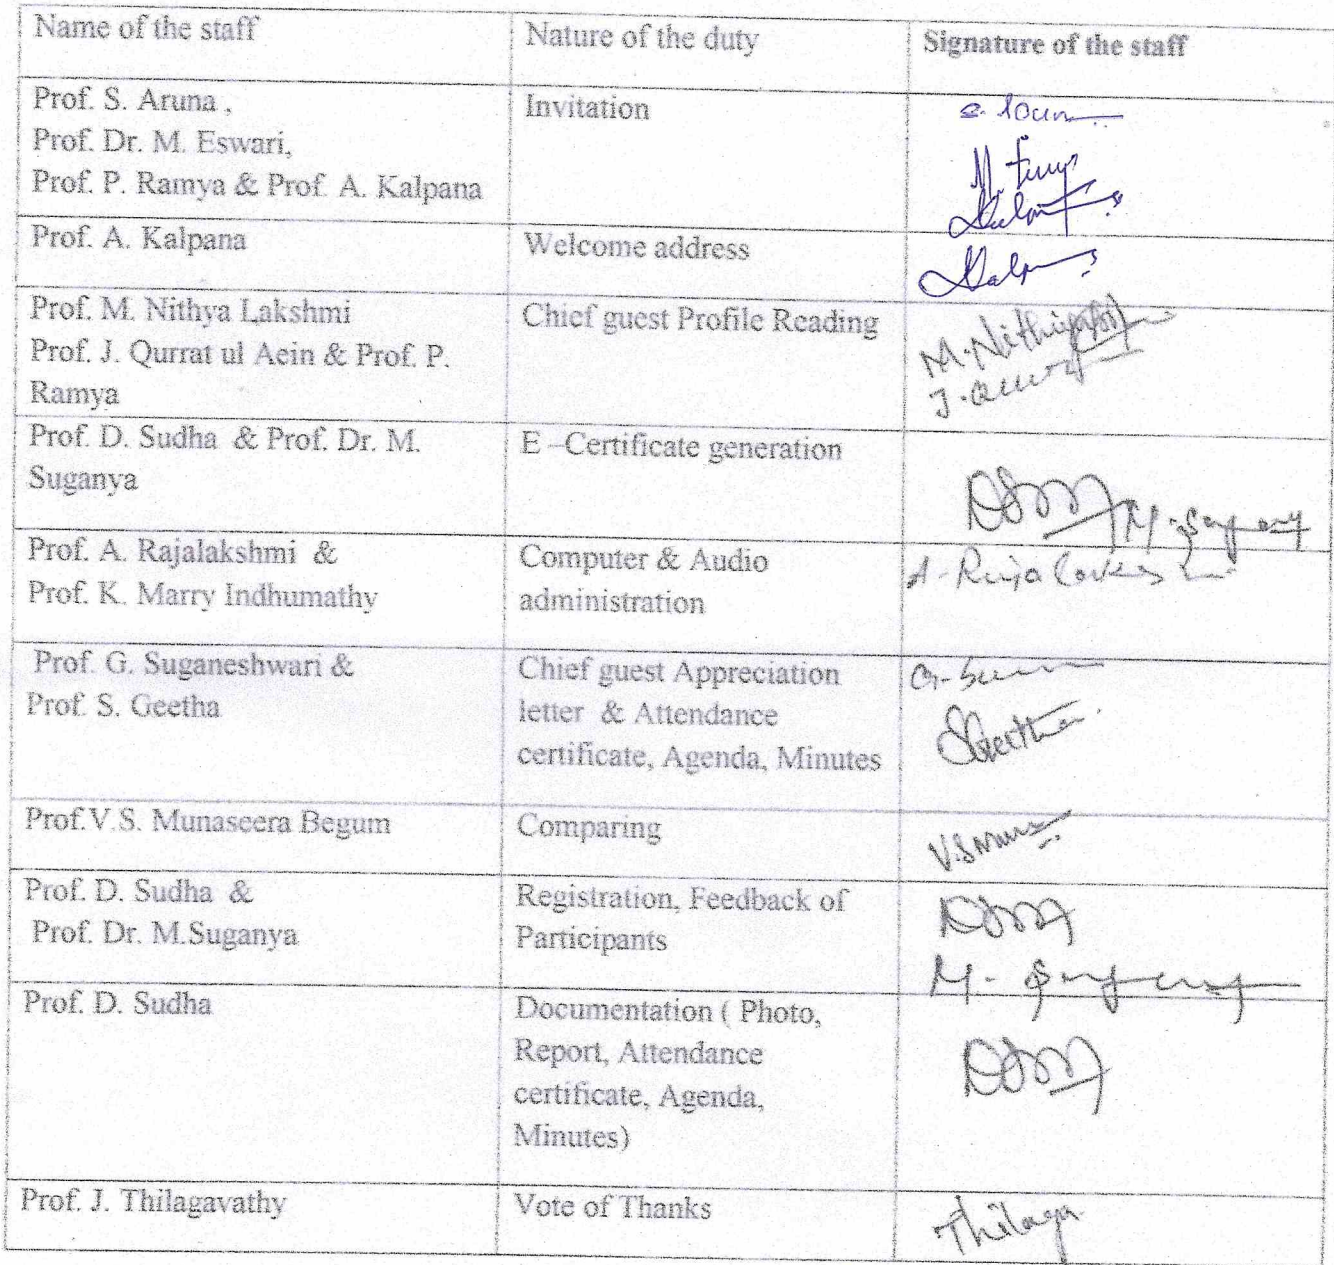 Name of the staff
Nature of the duty
Signature of the staff
Prof. S. Aruna ,
Prof. Dr. M. Eswari,
Prof. P. Ramya & Prof. A. Kalpana
Invitation
Prof. A. Kalpana
Welcome address
Prof. M. Nithya Lakshmi
Prof. J. Qurrat ul Aein & Prof. P.
Ramya
Chief guest Profile Reading
Prof. D. Sudha & Prof. Dr. M.
Suganya
E –Certificate generation
Prof. A. Rajalakshmi &
Prof. K. Marry Indhumathy
Computer & Audio
administration
A. Rajalakshmi
Prof. G. Suganeshwari &
Prof. S. Geetha
Chief guest Appreciation
letter & Attendance
certificate, Agenda, Minutes
SGeetha
Prof.V.S. Munaseera Begum
Comparing
Prof. D. Sudha &
Prof. Dr. M.Suganya
Registration, Feedback of
Participants
Prof. D. Sudha
Documentation ( Photo,
Report, Attendance
certificate, Agenda,
Minutes)
Prof. J. Thilagavathy
Vote of Thanks
Thilaga